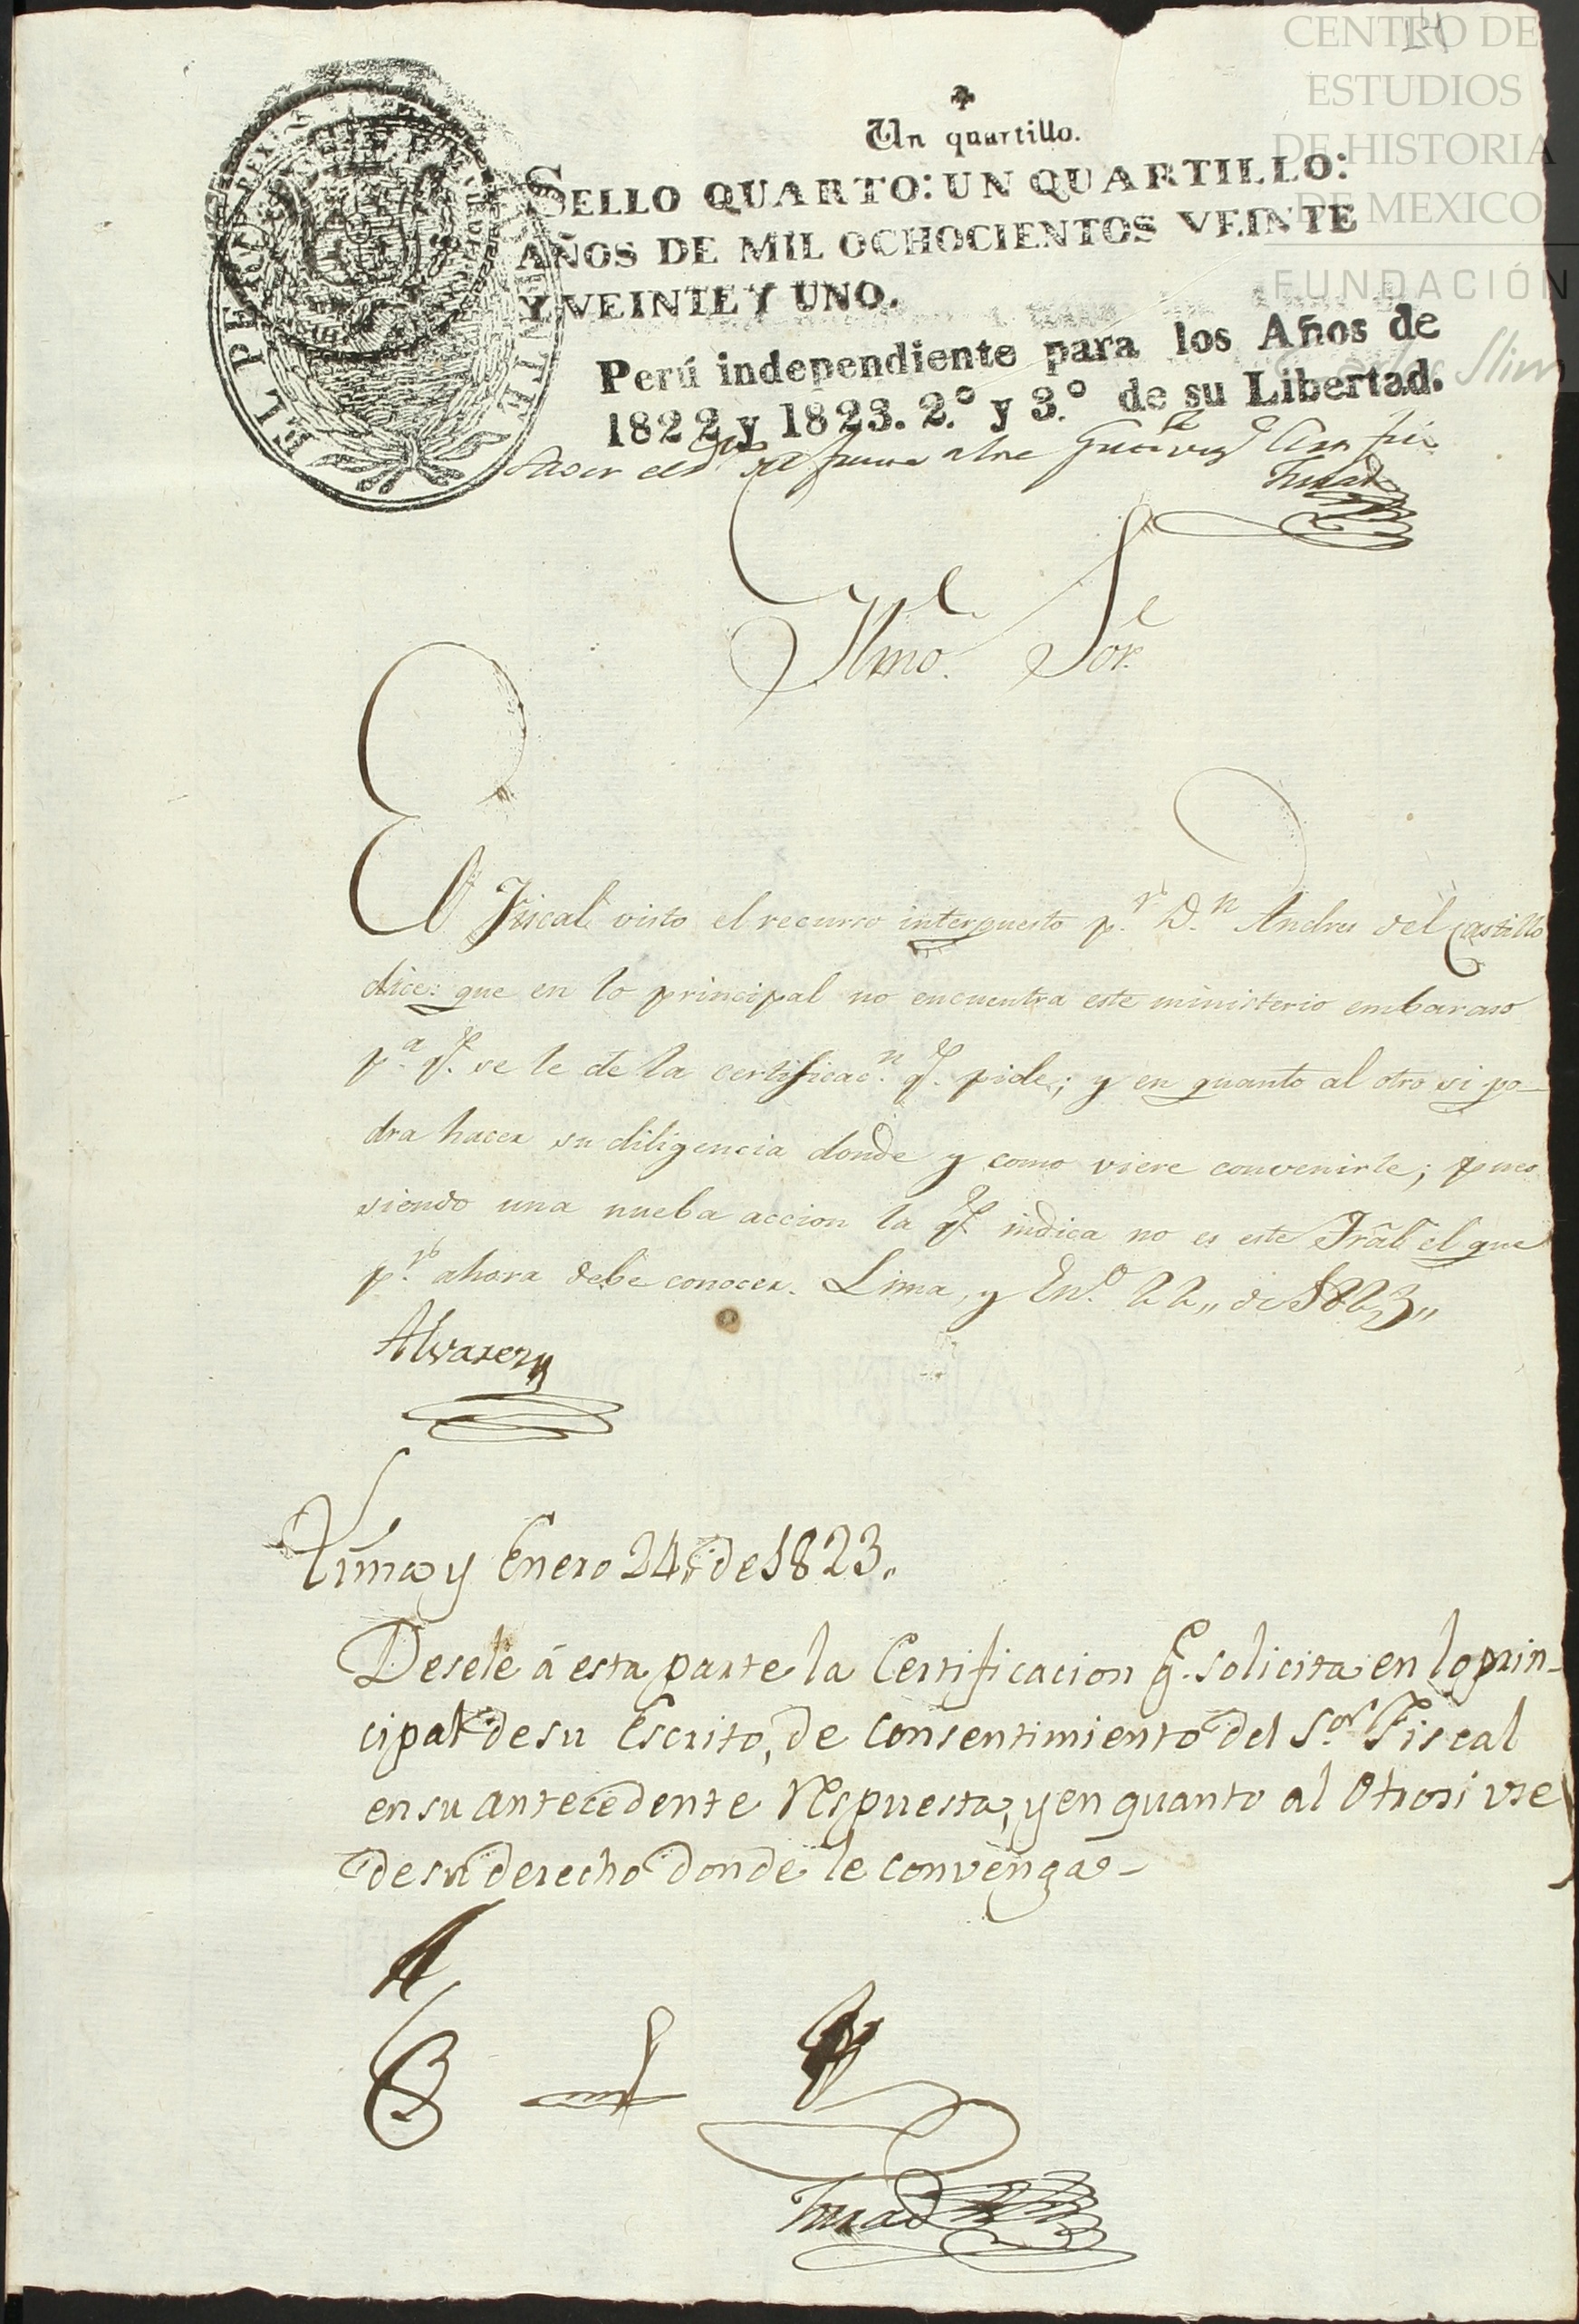 14
CENTRO DE
ESTUDIOS
DE HISTORIA
DE MEXICO
FUNDACIÓN
Carlos Slim
Un quartillo.
SELLO QUARTO: UN QUARTILLO:
AÑOS DE MIL OCHOCIENTOS VEINTE
Y VEINTE Y UNO.
Perú independiente para los Años de
1822 y 1823. 2.º y 3.º de su Libertad.
EL PERU
Ylmo. Sor.
El Fiscal visto el recurso interpuesto p.r D.n Andres del Castillo
dice: que en lo principal no encuentra este ministerio embaraso
p.a q.e se le de la certificac.n q.e pide; y en quanto al otro si po-
dra hacer su diligencia donde y como viere convenirle; pues
siendo una nueba accion la q.e indica no es este Tral el que
p.r ahora debe conocer. Lima, y En.o 22,, de 1823,,
Alvarez
Lima y Enero 24,, de 1823,,
Desele á esta parte la Certificacion q.e solicita en lo prin-
cipal de su Escrito, de consentimiento del S.or Fiscal
en su antecedente respuesta, y en quanto al Otrosi use
de su derecho donde le convenga-